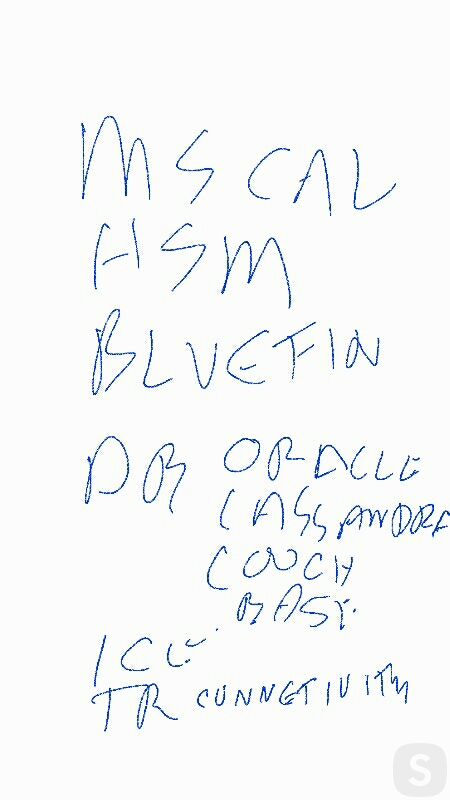 MS CAL
HSM
BLUEFIN
DB ORACLE
CASSANDRA
COUCH
BASE
ICE
TR CUNNETIVITY
S